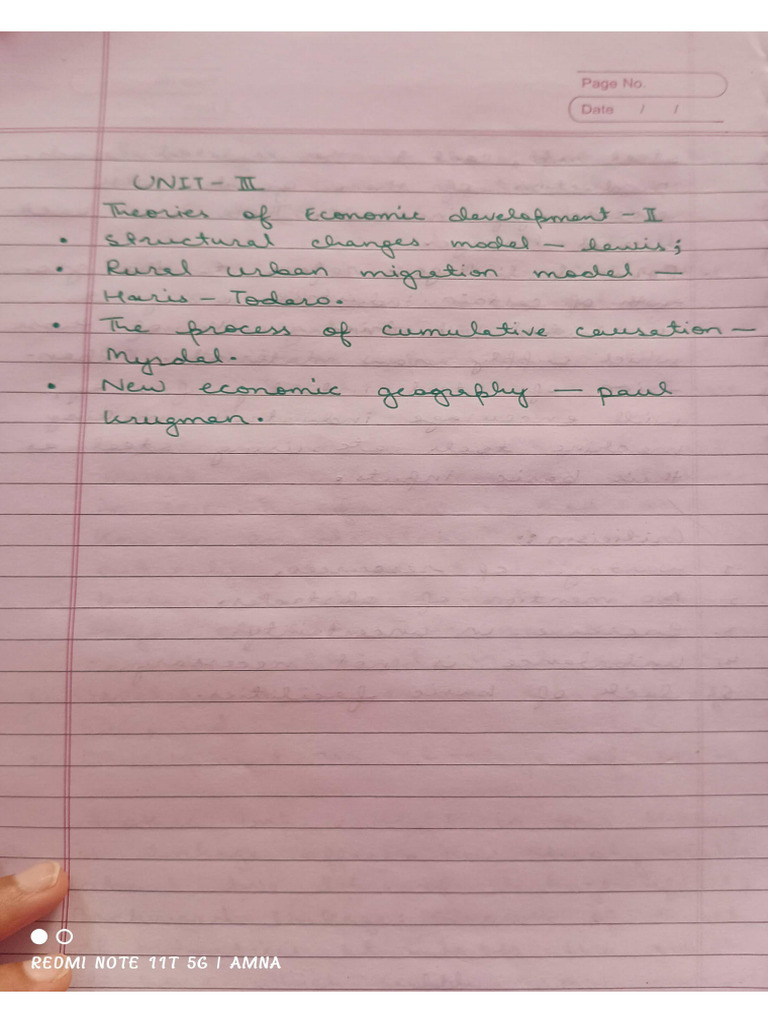 Page No.
Date / /
UNIT - III
Theories of Economic development - II
• Structural changes model - Lewis;
• Rural urban migration model -
Haris - Todaro.
• The process of cumulative causation -
Myrdal.
• New economic geography - paul
Krugman.
REDMI NOTE 11T 5G | AMNA